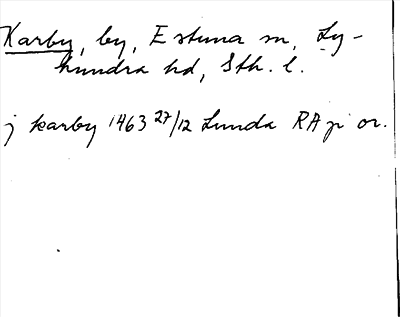 Karby, by, Estuna sn, Ly-
hundra hd, Sth. l.
j karby 1463 27/12 Lunda RA p or.